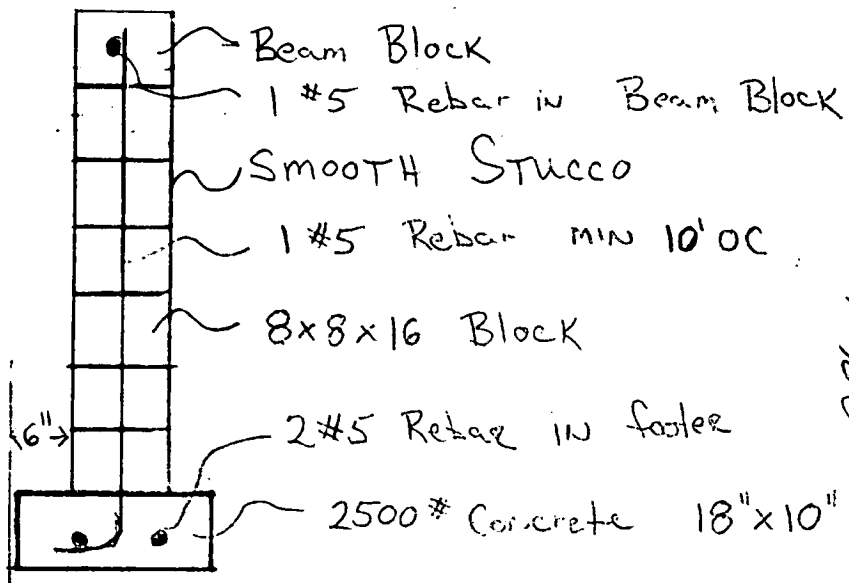 Beam Block
1 #5 Rebar in Beam Block
SMOOTH STUCCO
1 #5 Rebar MIN 10' OC
8x8x16 Block
6"
2 #5 Rebar IN footer
2500# Concrete 18"x10"